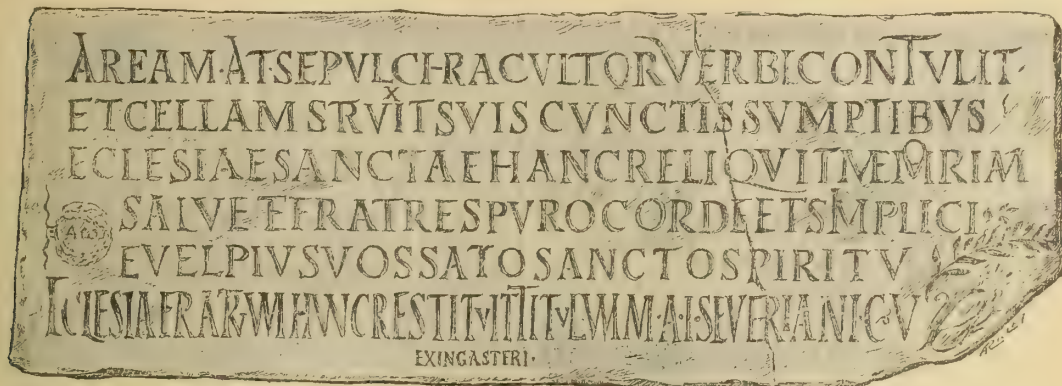 AREAM·AT·SEPVLCHRA CVLTOR VERBI CONTVLIT·
ET CELLAM STRVXIT SVIS CVNCTIS SVMPTIBVS
ECLESIAE SANCTAE HANC RELIQVIT MEMORIAM
SALVETE FRATRES PVRO CORDE ET SIMPLICI
Aω
EVELPIVS VOS SATO SANCTO SPIRITV
ECLESIA FRATRVM HVNC RESTITVIT TITVLVM M·A·I·SEVERIANI·C·V
EX ING ASTERI·